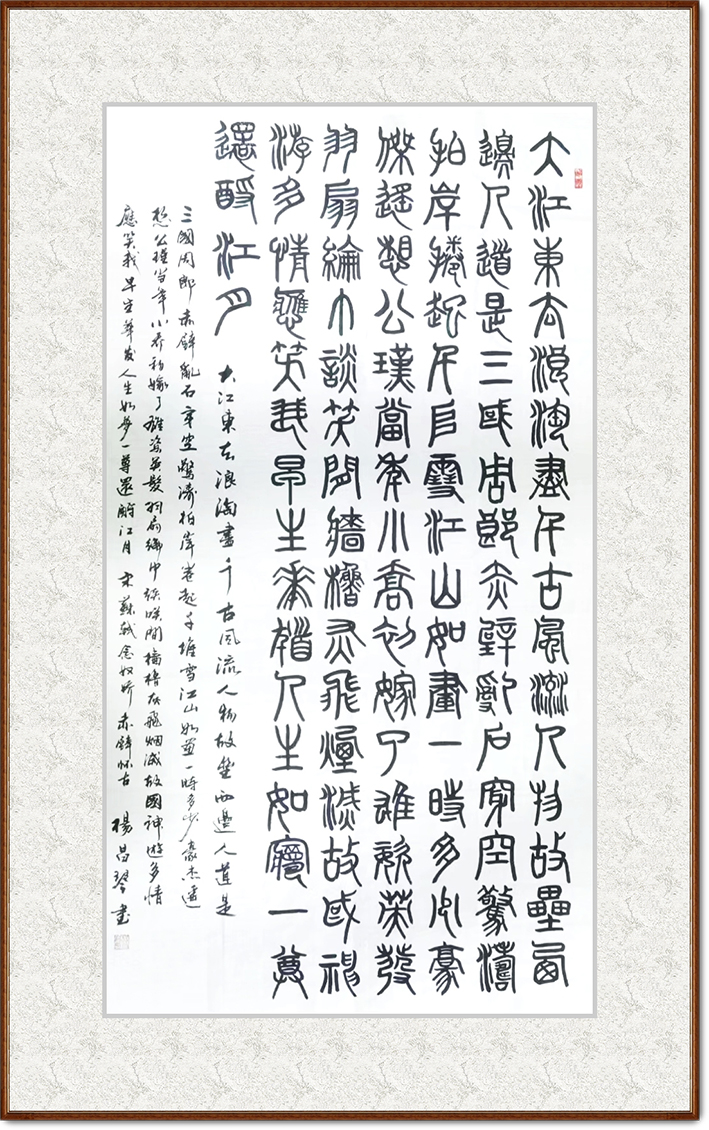 大江東去浪淘盡千古風流人物故壘西
邊人道是三國周郎赤壁亂石穿空驚濤
拍岸捲起千堆雪江山如畫一時多少豪
傑遙想公瑾當年小喬初嫁了雄姿英發
羽扇綸巾談笑間牆櫓灰飛煙滅故國神
游多情應笑我早生華髮人生如夢一尊
還酹江月
大江東去浪淘盡千古風流人物故壘西邊人道是
三國周郎赤壁亂石穿空驚濤拍岸卷起千堆雪江山如畫一時多少豪杰遙
想公瑾當年小喬初嫁了雄姿英發羽扇綸巾談笑間檣櫓灰飛烟滅故國神遊多情
應笑我早生華发人生如夢一尊還酹江月 宋蘇軾念奴嬌赤壁怀古 楊昌琴書